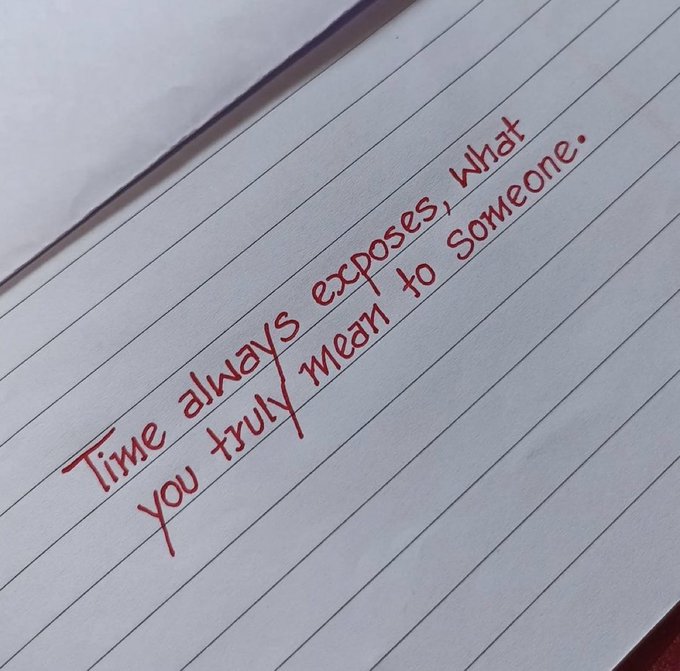 Time always exposes, what
you truly mean to someone.